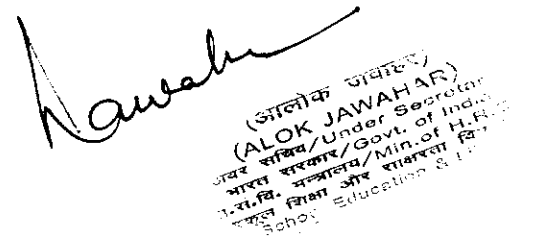 Jawahar
(आलोक जवाहर)
(ALOK JAWAHAR)
अवर सचिव/Under Secretar
भारत सरकार/Govt. of India
मा.सं.वि. मन्त्रालय/Min.of H.R.
स्कूल शिक्षा और साक्षरता वि
School Education &